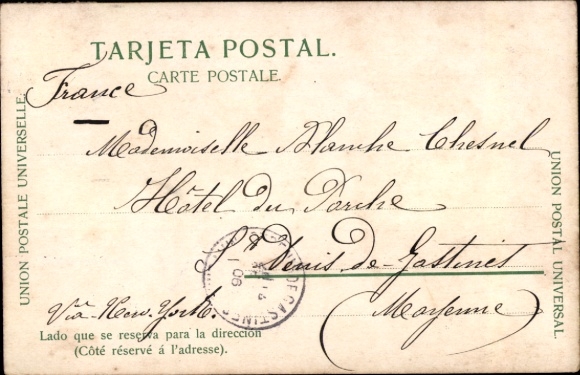 TARJETA POSTAL.
CARTE POSTALE.
France
Mademoiselle Blanche Chesnel
Hôtel du Porche
St Denis-de-Gastines
(Mayenne)
Via-New.York.
Lado que se reserva para la dirección
(Côté réservé á l'adresse).
UNION POSTALE UNIVERSELLE.
UNION POSTAL UNIVERSAL.
DE GASTINES
06